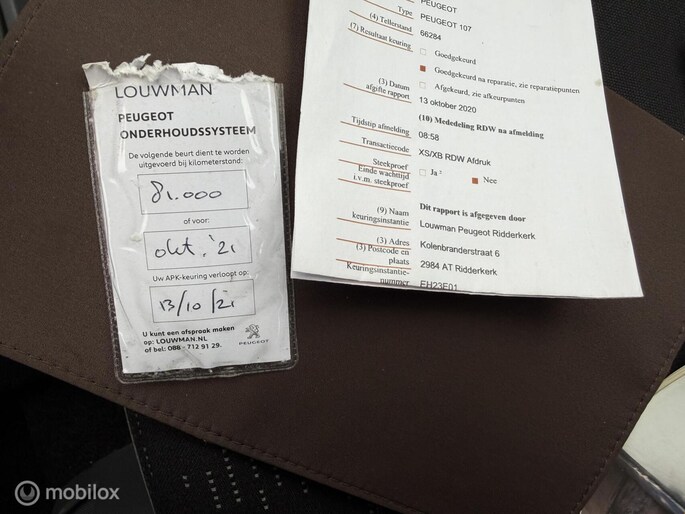 LOUWMAN
PEUGEOT
ONDERHOUDSSYSTEEM
De volgende beurt dient te worden
uitgevoerd bij kilometerstand:
81.000
of voor:
okt. '21
Uw APK-keuring verloopt op:
13/10/21
U kunt een afspraak maken
op: LOUWMAN.NL
of bel: 088 - 712 91 29.
PEUGEOT
PEUGEOT
Type PEUGEOT 107
(4) Tellerstand 66284
(7) Resultaat keuring
Goedgekeurd
Goedgekeurd na reparatie, zie reparatiepunten
Afgekeurd, zie afkeurpunten
(3) Datum
afgifte rapport 13 oktober 2020
(10) Mededeling RDW na afmelding
Tijdstip afmelding 08:58
Transactiecode XS/XB RDW Afdruk
Steekproef Ja ² Nee
Einde wachttijd
i.v.m. steekproef
Dit rapport is afgegeven door
(9) Naam
keuringsinstantie Louwman Peugeot Ridderkerk
(3) Adres Kolenbranderstraat 6
(3) Postcode en
plaats 2984 AT Ridderkerk
Keuringsinstantie-
nummer EH23E01
mobilox